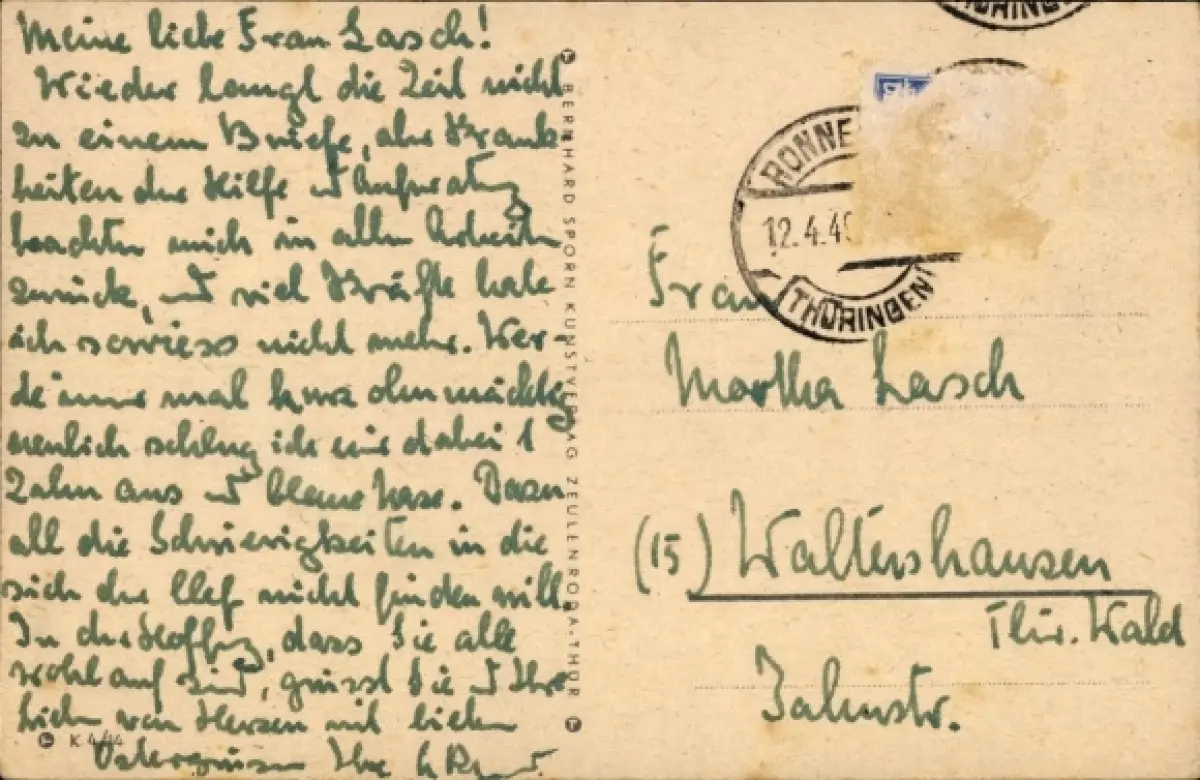 Meine liebe Frau Lasch!
Wieder langt die Zeit nicht
zu einem Briefe, aber Krank-
heiten der Hilfe u
brachten mich in allen Arbeiten
zurück, und viel Kräfte habe
ich sowieso nicht mehr. Wer-
de immer mal kurz ohnmächtig
neulich schlug ich mir dabei 1
Zahn aus u blaue Nase. Dazu
all die Schwierigkeiten in die
sich der Chef nicht finden will.
In der Hoffg, dass Sie alle
wohlauf sind, grüsst Sie u Ihre
lieben von Herzen mit lieben
Ostergrüssen Ihre
K 4/44
BERNHARD SPORN KUNSTVERLAG ZEULENRODA-THÜR
THÜRINGEN
RONNE
12.4.49
(THÜRINGEN)
Frau
Martha Lasch
(15) Waltershausen
Thür. Wald